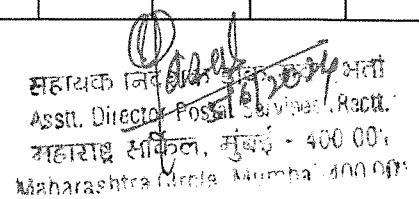 सहायक निदेशक डाक सेवा भर्ती
Asstt. Director Postal Services, Rectt.
महाराष्ट्र सर्किल, मुंबई - 400 001
Maharashtra Circle, Mumbai 400 001
5/6/2024